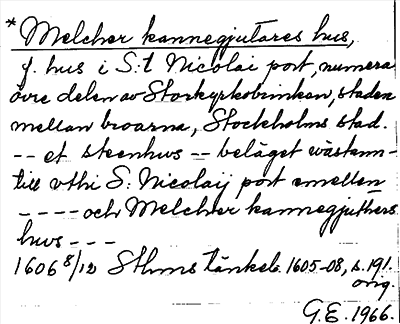 * Melcher kannegjutares hus,
f. hus i S:t Nicolai port, numera
övre delen av Storkyrkobrinken, staden
mellan broarna, Stockholms stad.
-- et steenhws -- beläget wästann-
till vthi S: Nicolaij port emellen
---- och Melcher kannegjuthers
hws ---
1606 8/12 Sthms tänkeb. 1605-08, s. 191.
orig.
G.E. 1966.